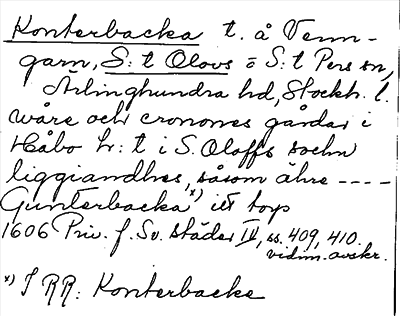 Konterbacka t. å Venn-
garn, S:t Olovs = S:t Pers sn,
Ärlinghundra hd, Stockh. l.
wåre och cronones gårdar i
Håbo hr:t i S. Oloffs sochn
liggiandhes, såsom ähre ----
Gunterbacka x) itt torp
1606 Priv. f. Sv. städer IV, ss. 409, 410.
vidim. avskr.
x) I RR: Konterbacke